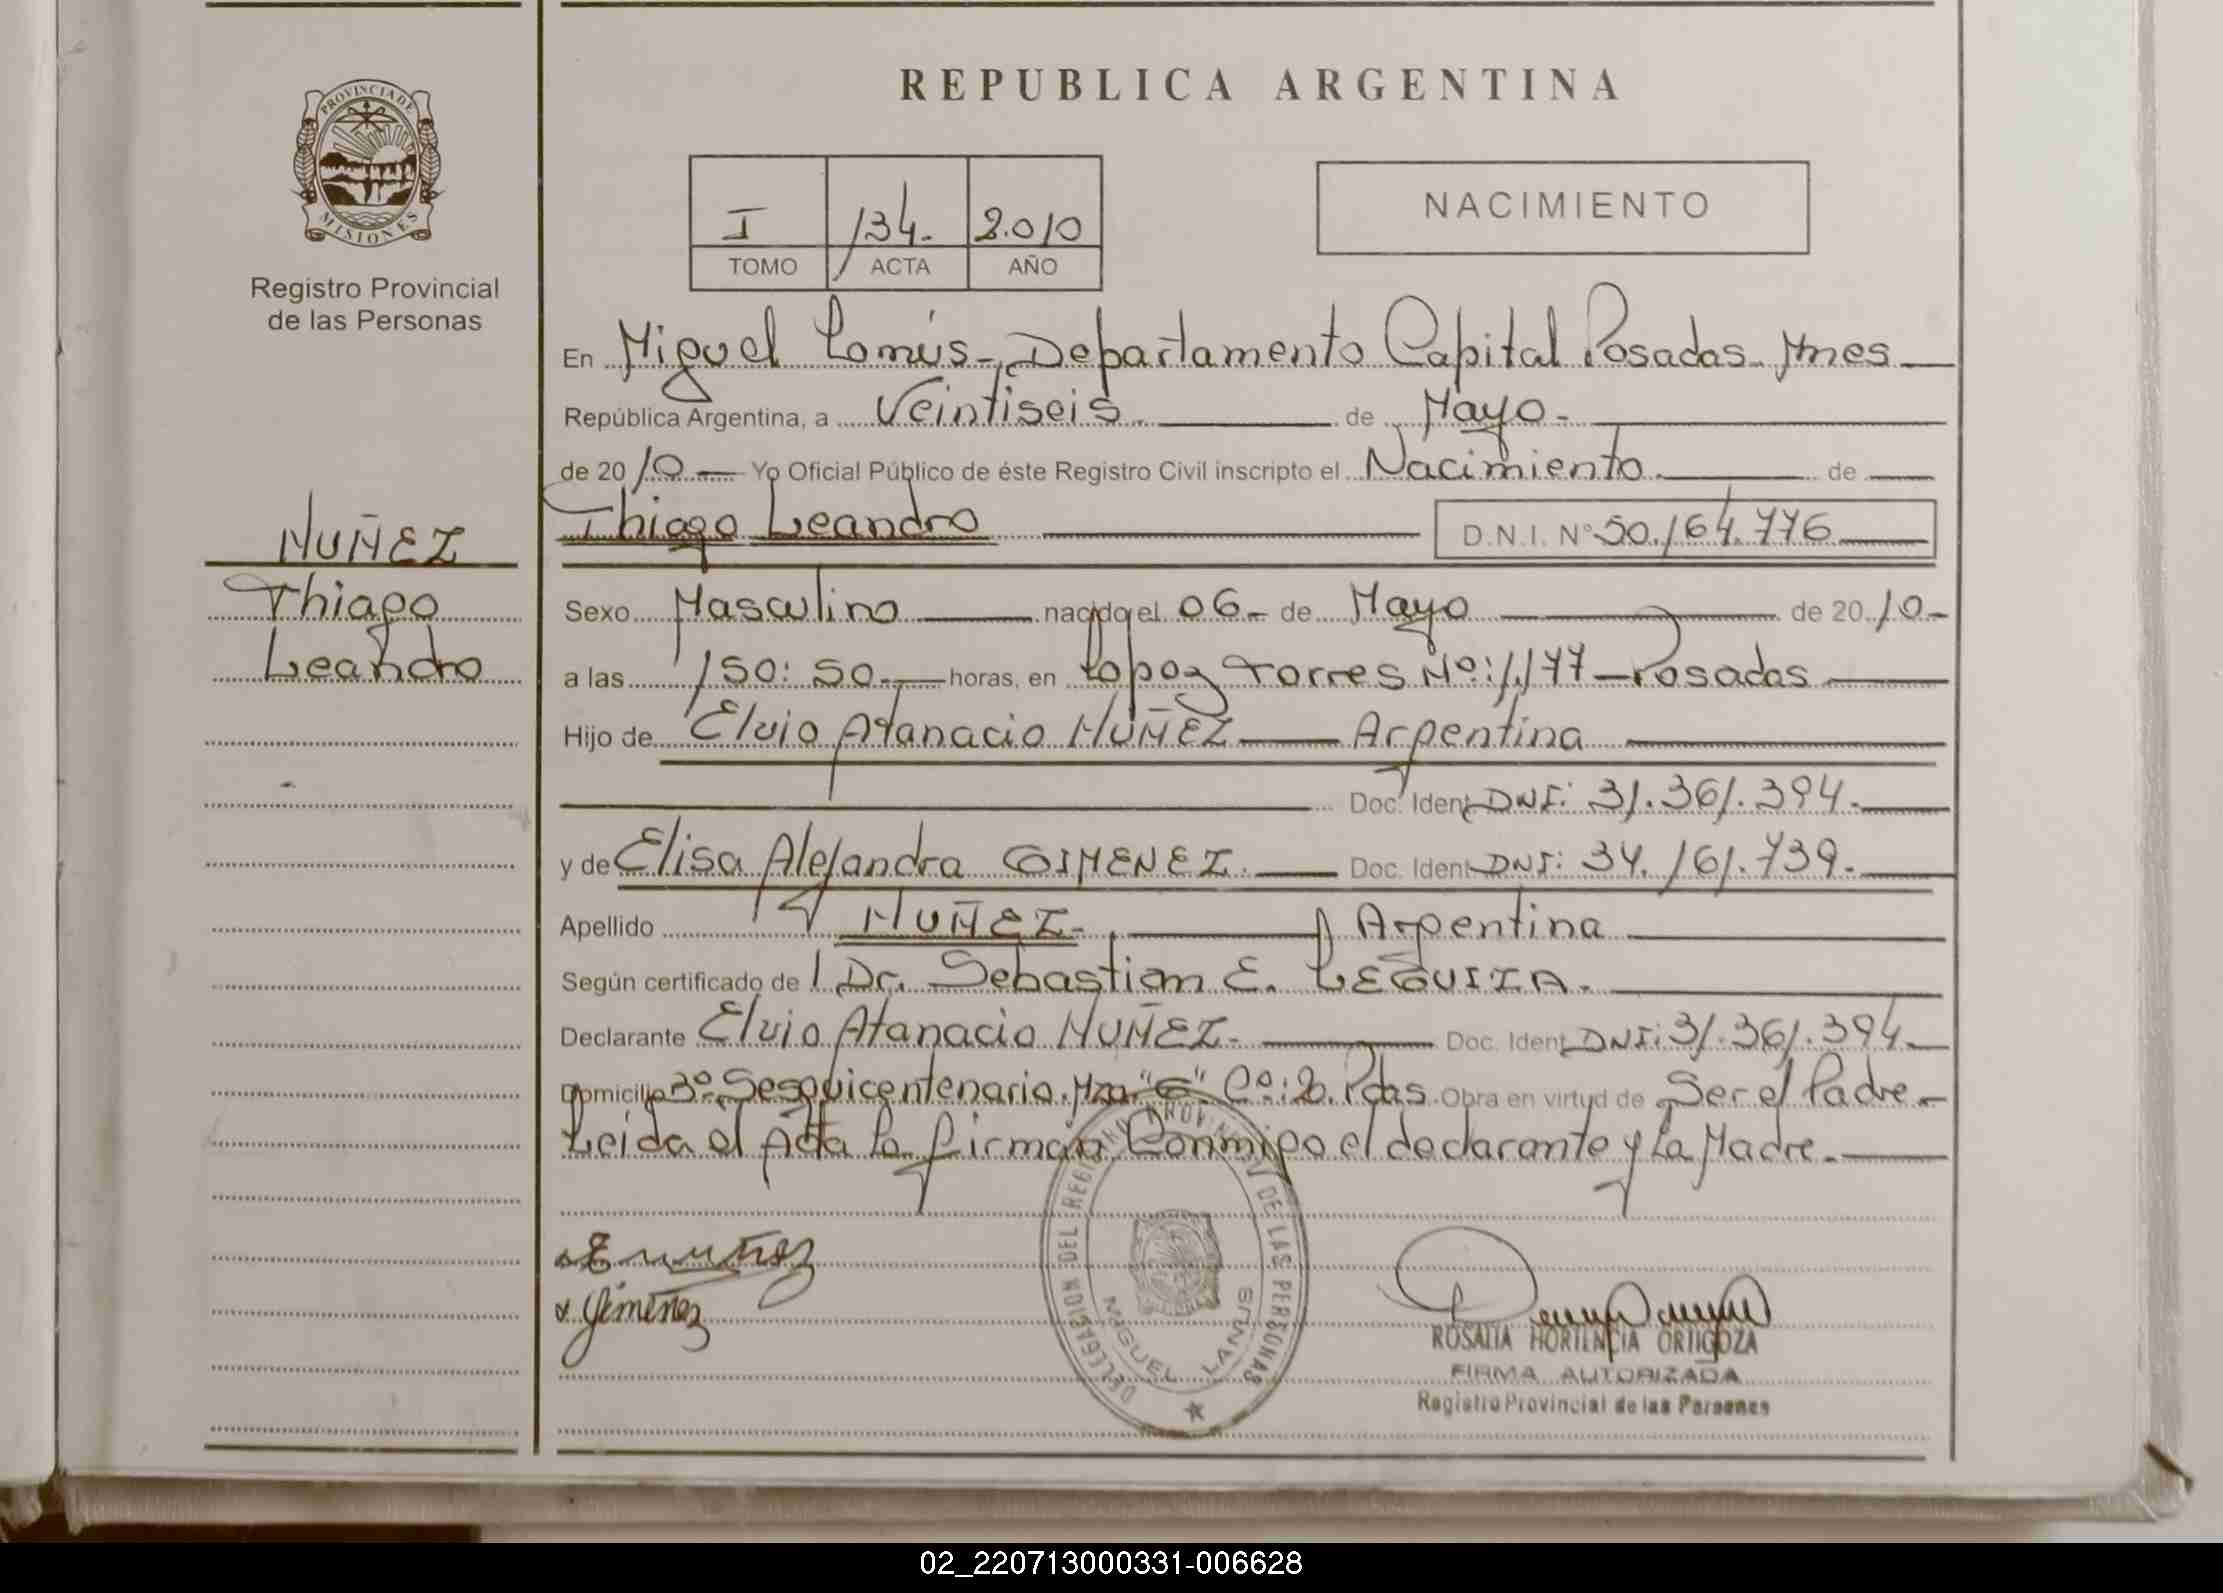 PROVINCIA DE
MISIONES
Registro Provincial
de las Personas
NUÑEZ
Thiago
Leandro
REPUBLICA ARGENTINA
I 134.- 2.010
TOMO ACTA AÑO
NACIMIENTO
En Miguel Lanús-, Departamento Capital Posadas. Mnes
República Argentina, a Veintiseis. de Mayo.-
de 20 10 Yo Oficial Público de éste Registro Civil inscripto el Nacimiento. de
Thiago Leandro D.N.I. Nº 50.164.776
Sexo Masculino nacido el 06.- de Mayo de 20 10-
a las 150:50.- horas, en Lopez Torres Nº:1.177-Posadas
Hijo de Elvio Atanacio NUÑEZ Argentina
Doc. Ident DNI: 31.361.394.-
y de Elisa Alejandra GIMENEZ. Doc. Ident DNI: 34.161.739.-
Apellido NUÑEZ.- Argentina
Según certificado de Dr. Sebastian E. LEGUIZA.
Declarante Elvio Atanacio NUÑEZ.- Doc. Ident DNI: 31.361.394.-
Domicilio Bº Sesquicentenario. Mza "G" Cº: 20. Pdas. Obra en virtud de Ser el Padre.-
Leida el Acta la firman Conmigo el declarante y La Madre.-
E Nuñez
Gimenez
DELEGACION DEL REGISTRO PROVINCIAL DE LAS PERSONAS
MIGUEL LANUS
ROSALIA HORTENCIA ORTIGOZA
FIRMA AUTORIZADA
Registro Provincial de las Personas
02_220713000331-006628